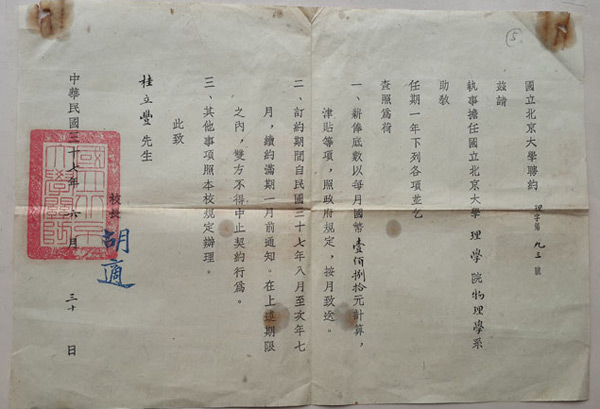 國立北京大學聘約 理字第九三號
茲請
執事擔任國立北京大學理學院物理學系
助教
任期一年下列各項並乞
查照為荷
一、薪俸底數以每月國幣壹佰捌拾元計算，
津貼等項，照政府規定，按月致送。
二、訂約期間自民國三十七年八月至次年七
月，續約滿期一月前通知。在上述期限
之內，雙方不得中止契約行為。
三、其他事項照本校規定辦理。
此致
桂立豐先生
校長 胡適
中華民國三十七年六月三十日
⑤